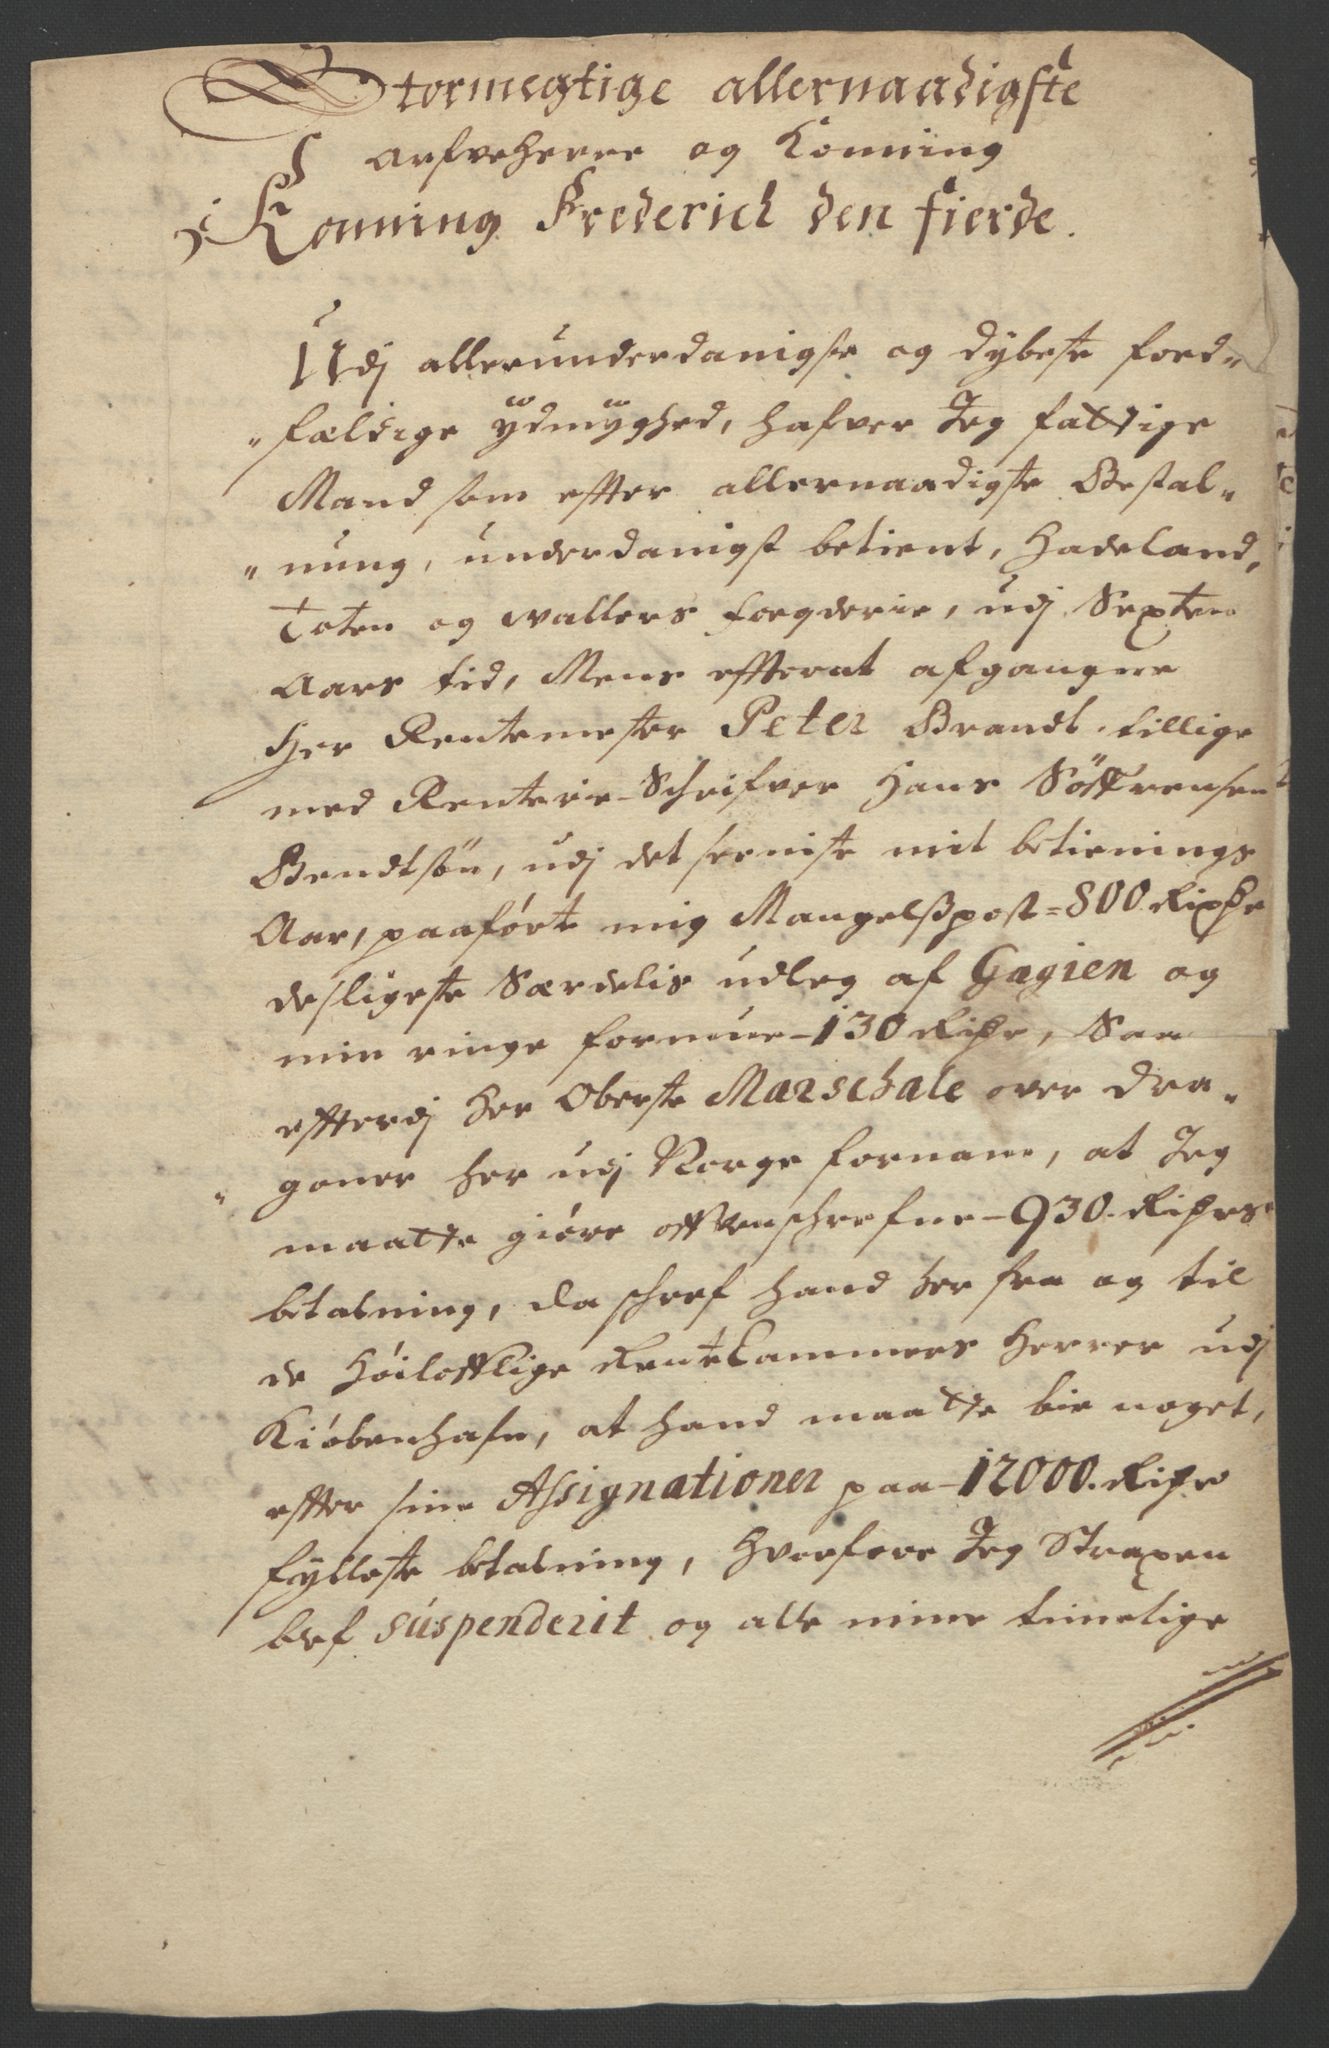 Stormegtige allernaadigste
arfveherre og Konning
Konning Frederich den fierde.
Udj allerunderdanigste og dybeste foed-
"fældige ÿdmÿghed, hafver Jeg fattige
Mand som efter allernaadigste Bestal-
"nung, underdanigst betient, Hadeland,
Toten og Wallers foegderie, udj Sexten
Aars tid, Mens efterat afgangne
Her Rentemester Peter Brandt tillige
med Renterie-Schrifver Hans Söffrensen
Bendtsön, udj det seeniste mit betienings
Aar, paaført mig Mangelsspost=800 Rixdr
desligeste Særdelis udleg af Gagien og
min ringe formue-130 Rixdr, Saa
efterdj Her Oberste Marschale over dra-
"goner her udj Norge fornam, at Jeg
maatte giøre offvenschrefne-930. Rixdrs
betalning, da schref hand her fra og til
de Höilofflige RenteCammers Herrer udj
Kiøbenhafn, at hand maatte bie noget,
efter sine Assignationer paa-12000. Rixdr
fylleste betalning, Hvorfore Jeg Straxen
blef suspenderit og alle mine timelige